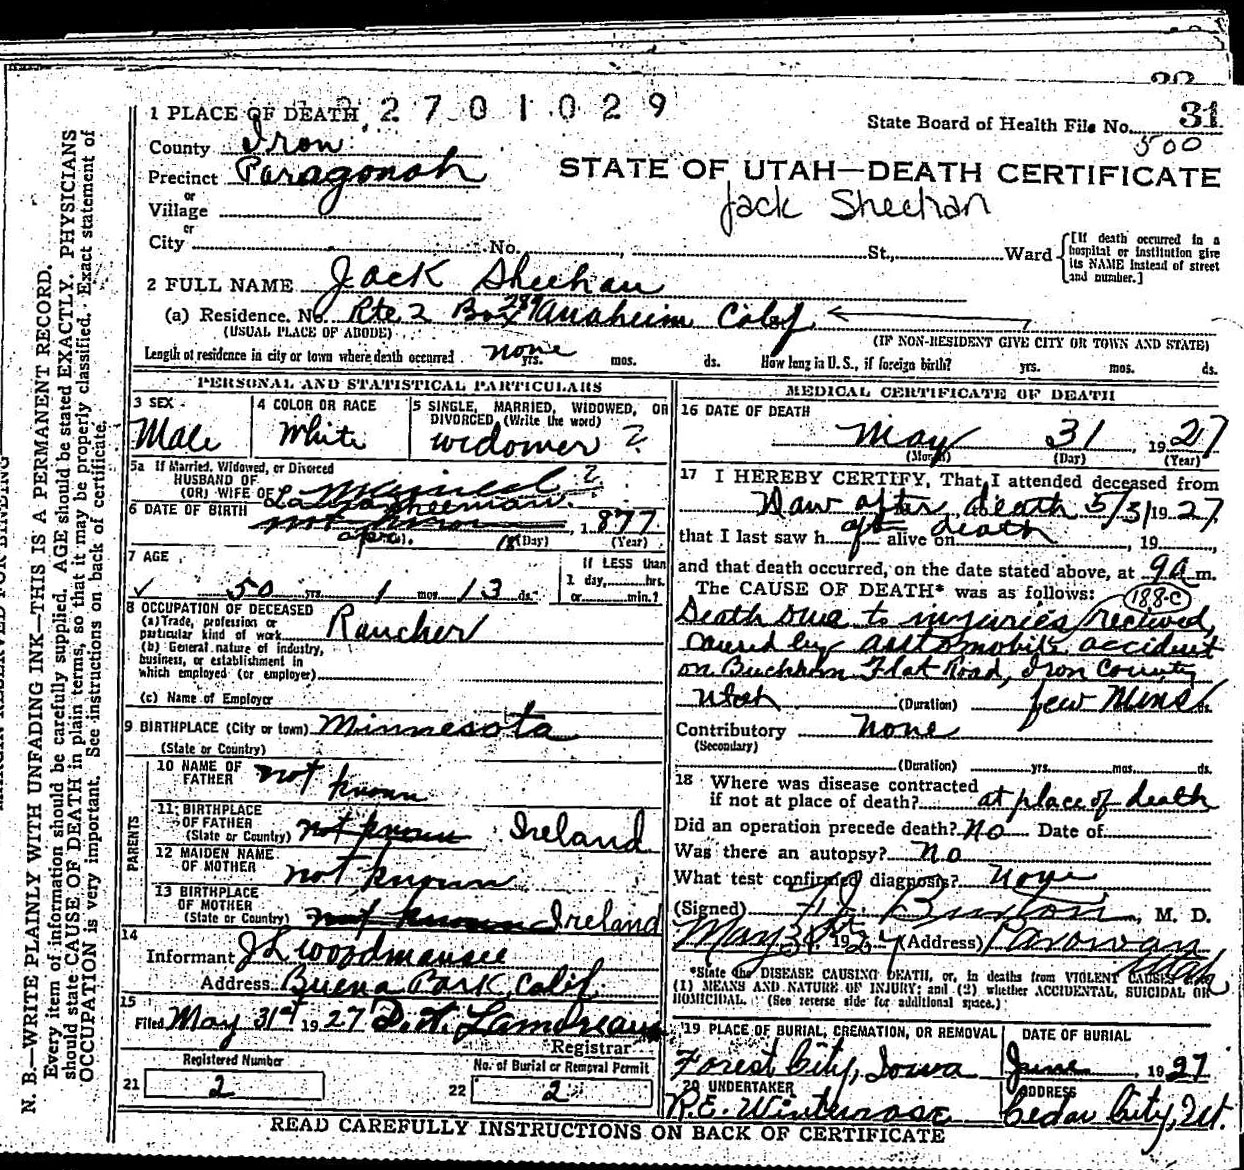 22701029
31
1 PLACE OF DEATH
State Board of Health File No.
500
County Iron
Precinct Paragonah
or
Village
or
STATE OF UTAH—DEATH CERTIFICATE
Jack Sheehan
City No. St., Ward
[If death occurred in a hospital or institution give its NAME instead of street and number.]
2 FULL NAME Jack Sheehan
(a) Residence. No. Rte 2 Box 289 Anaheim Calif
(USUAL PLACE OF ABODE)
(IF NON-RESIDENT GIVE CITY OR TOWN AND STATE)
Length of residence in city or town where death occurred none yrs. mos. ds. How long in U. S., if foreign birth? yrs. mos. ds.
PERSONAL AND STATISTICAL PARTICULARS
3 SEX
Male
4 COLOR OR RACE
White
5 SINGLE, MARRIED, WIDOWED, OR DIVORCED (Write the word)
widower ?
5a If Married, Widowed, or Divorced
HUSBAND OF
(OR) WIFE OF
Married ?
6 DATE OF BIRTH
not known
Apr. 18 1877
(Day) (Year)
7 AGE
50 yrs. 1 mos. 13 ds.
If LESS than
1 day, hrs.
or min.?
8 OCCUPATION OF DECEASED
(a) Trade, profession or
particular kind of work Rancher
(b) General nature of industry,
business, or establishment in
which employed (or employer)
(c) Name of Employer
9 BIRTHPLACE (City or town) Minnesota
(State or Country)
PARENTS
10 NAME OF
FATHER not known
11 BIRTHPLACE
OF FATHER
(State or Country) not known Ireland
12 MAIDEN NAME
OF MOTHER not known
13 BIRTHPLACE
OF MOTHER
(State or Country) not known Ireland
14
Informant J L Woodmansee
Address Buena Park, Calif.
15
Filed May 31st 1927 Lamoreaux
Registrar
Registered Number
21 2
No. of Burial or Removal Permit
22 2
MEDICAL CERTIFICATE OF DEATH
16 DATE OF DEATH
May 31, 1927
(Month) (Day) (Year)
17 I HEREBY CERTIFY, That I attended deceased from
Saw after death 5/31 1927
that I last saw h alive on after death, 19
and that death occurred, on the date stated above, at 9 a m.
The CAUSE OF DEATH* was as follows:
188-c
Death due to injuries received,
caused by automobile accident
on Buckhorn Flat Road, Iron County
Utah (Duration) few Mins.
Contributory None
(Secondary)
(Duration) yrs. mos. ds.
18 Where was disease contracted
if not at place of death? at place of death
Did an operation precede death? No Date of
Was there an autopsy? no
What test confirmed diagnosis? none
(Signed) Burton, M. D.
May 31, 1927 (Address) Parowan Utah
*State the DISEASE CAUSING DEATH, or, in deaths from VIOLENT CAUSES
(1) MEANS AND NATURE OF INJURY; and (2) whether ACCIDENTAL, SUICIDAL OR
HOMICIDAL. (See reverse side for additional space.)
19 PLACE OF BURIAL, CREMATION, OR REMOVAL
Forest City, Iowa
DATE OF BURIAL
June 1927
20 UNDERTAKER
R. E. Winterrose
ADDRESS
Cedar City, Ut.
READ CAREFULLY INSTRUCTIONS ON BACK OF CERTIFICATE
N. B.—WRITE PLAINLY WITH UNFADING INK—THIS IS A PERMANENT RECORD.
Every item of information should be carefully supplied. AGE should be stated EXACTLY. PHYSICIANS
should state CAUSE OF DEATH in plain terms, so that it may be properly classified. Exact statement of
OCCUPATION is very important. See instructions on back of certificate.